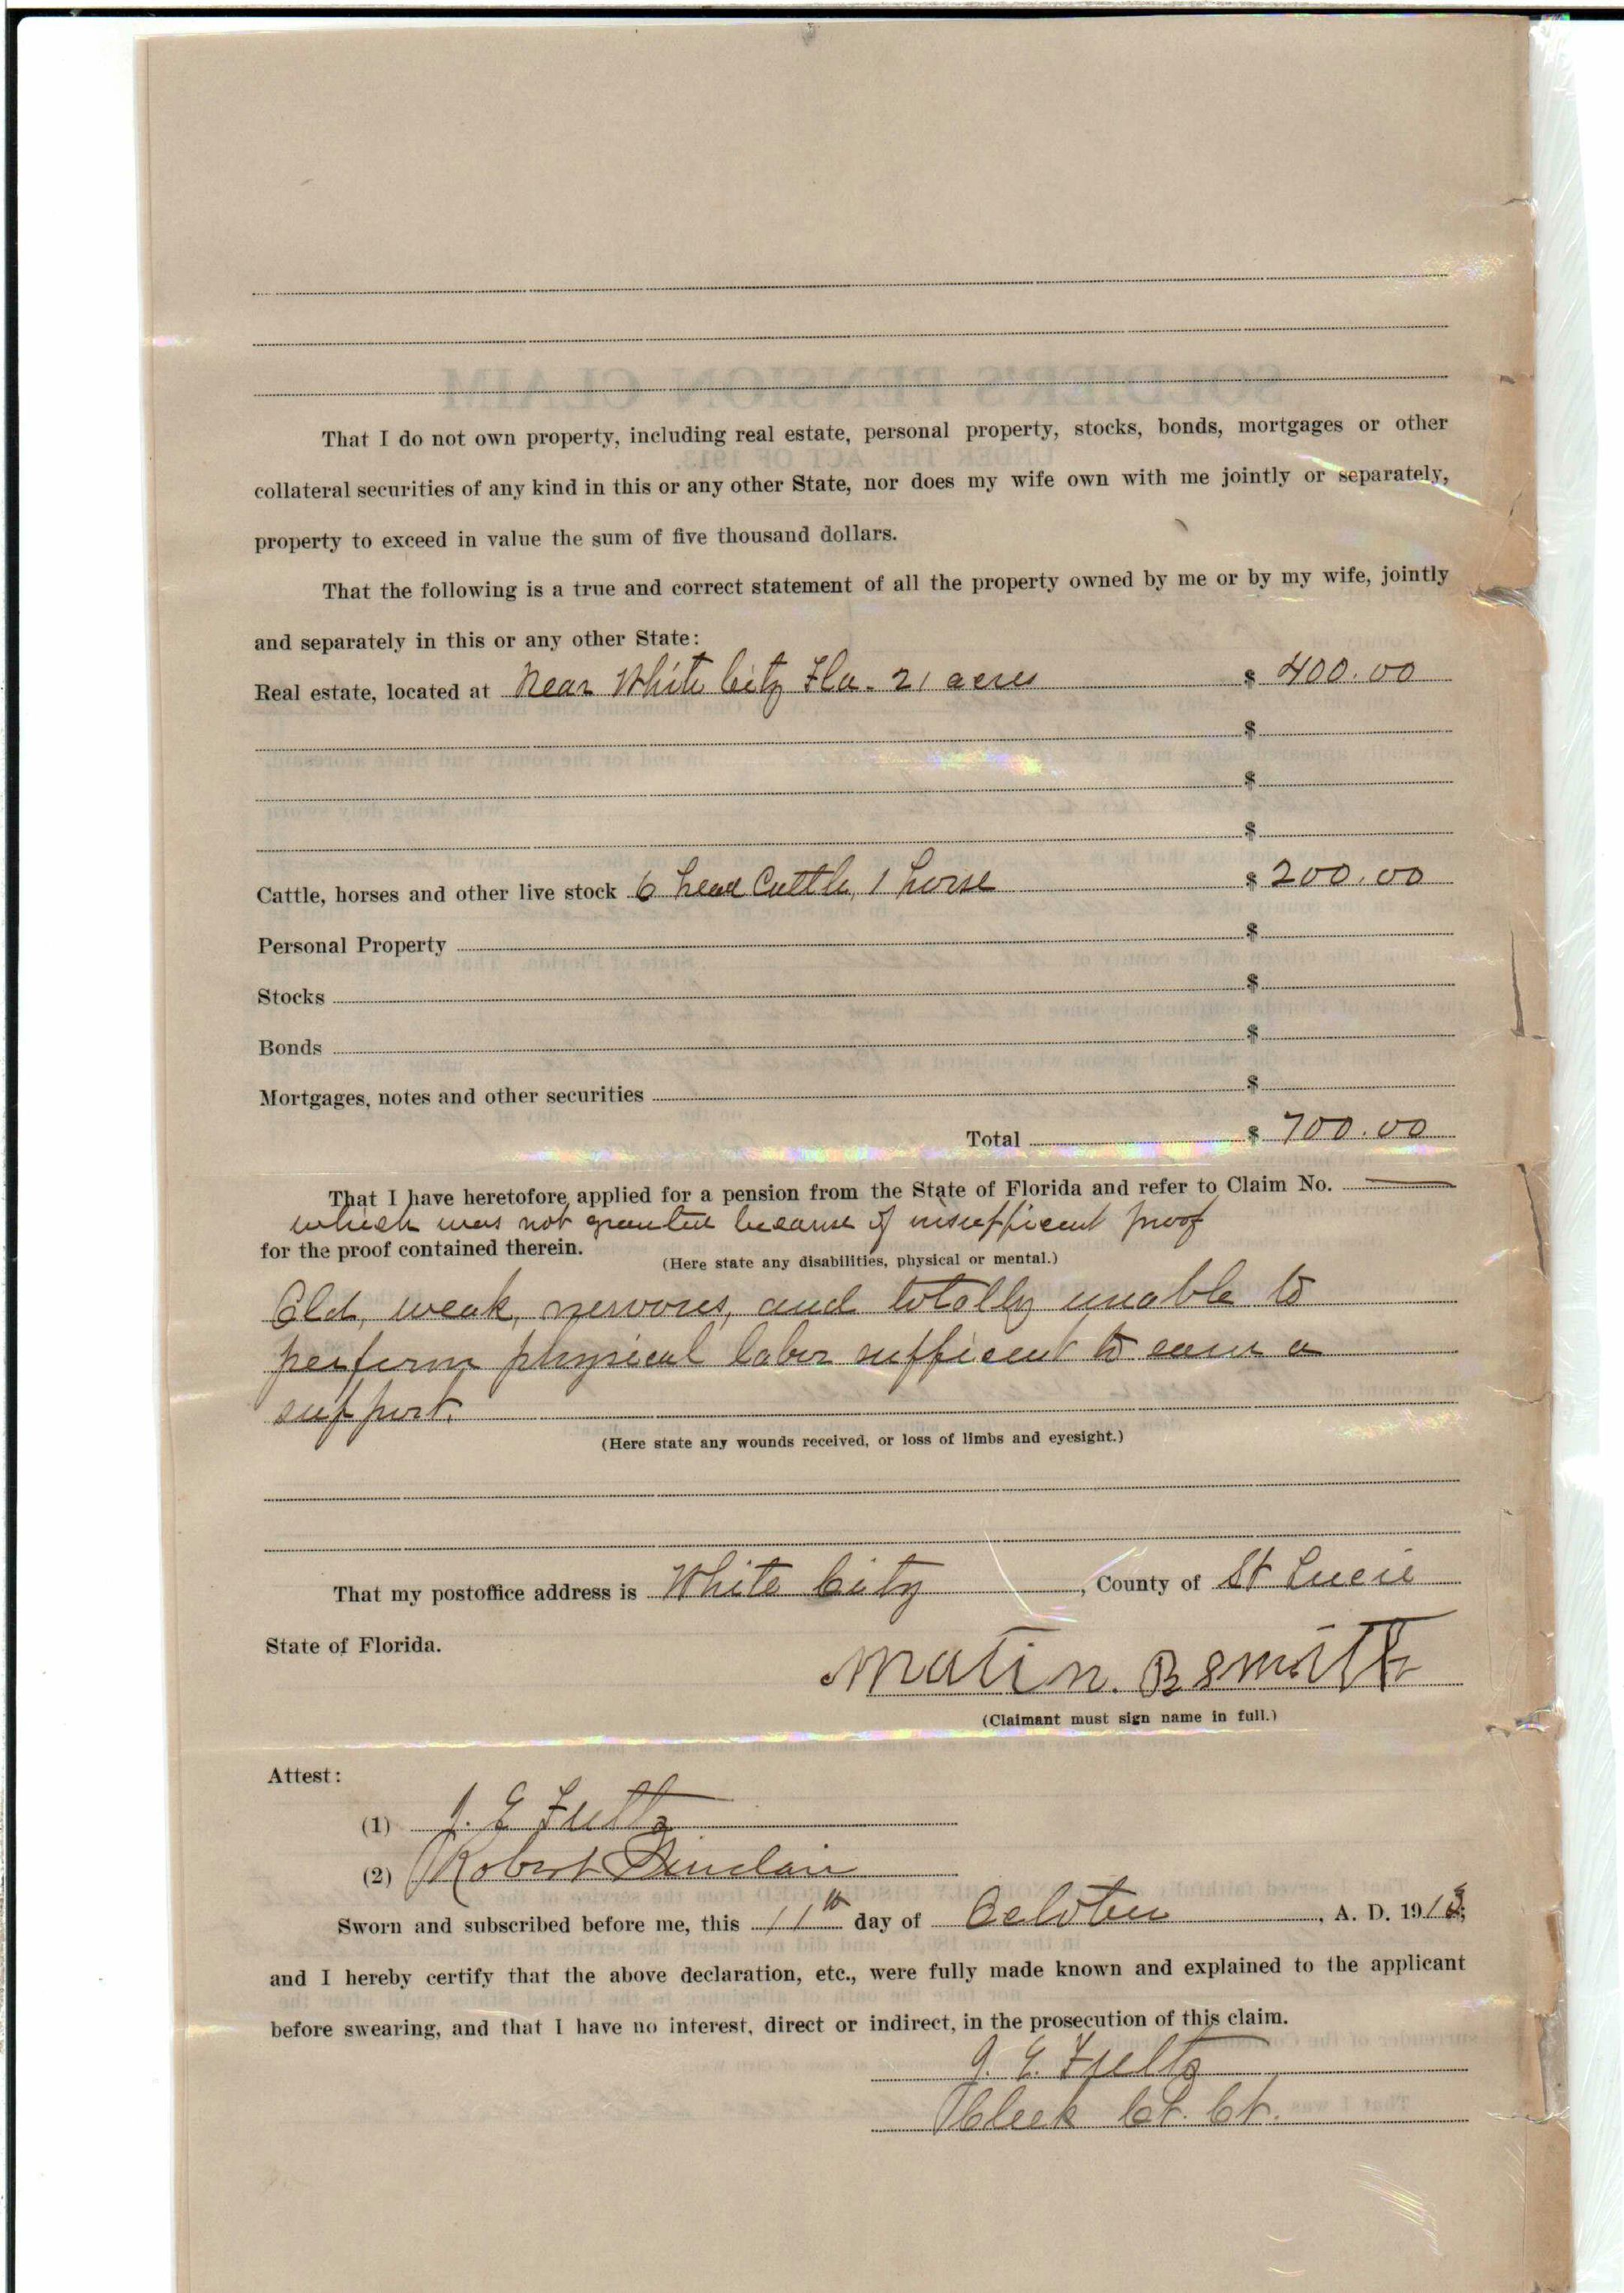 That I do not own property, including real estate, personal property, stocks, bonds, mortgages or other
collateral securities of any kind in this or any other State, nor does my wife own with me jointly or separately,
property to exceed in value the sum of five thousand dollars.
That the following is a true and correct statement of all the property owned by me or by my wife, jointly
and separately in this or any other State:
Real estate, located at Near White City Fla. 21 acres $ 400.00
$
$
$
Cattle, horses and other live stock 6 head Cattle, 1 horse $ 200.00
Personal Property $
Stocks $
Bonds $
Mortgages, notes and other securities $
Total $ 700.00
That I have heretofore applied for a pension from the State of Florida and refer to Claim No.
which was not granted because of insufficient proof
for the proof contained therein. (Here state any disabilities, physical or mental.)
Old, weak, nervous, and totally unable to
perform physical labor sufficient to earn a
support.
(Here state any wounds received, or loss of limbs and eyesight.)
That my postoffice address is White City, County of St Lucie
State of Florida.
Matin. B Smith
(Claimant must sign name in full.)
Attest:
(1) J. E Fultz
(2) Robert Sinclair
Sworn and subscribed before me, this 11th day of October, A. D. 1913,
and I hereby certify that the above declaration, etc., were fully made known and explained to the applicant
before swearing, and that I have no interest, direct or indirect, in the prosecution of this claim.
J. E. Fultz
Clerk Ct. Ct.